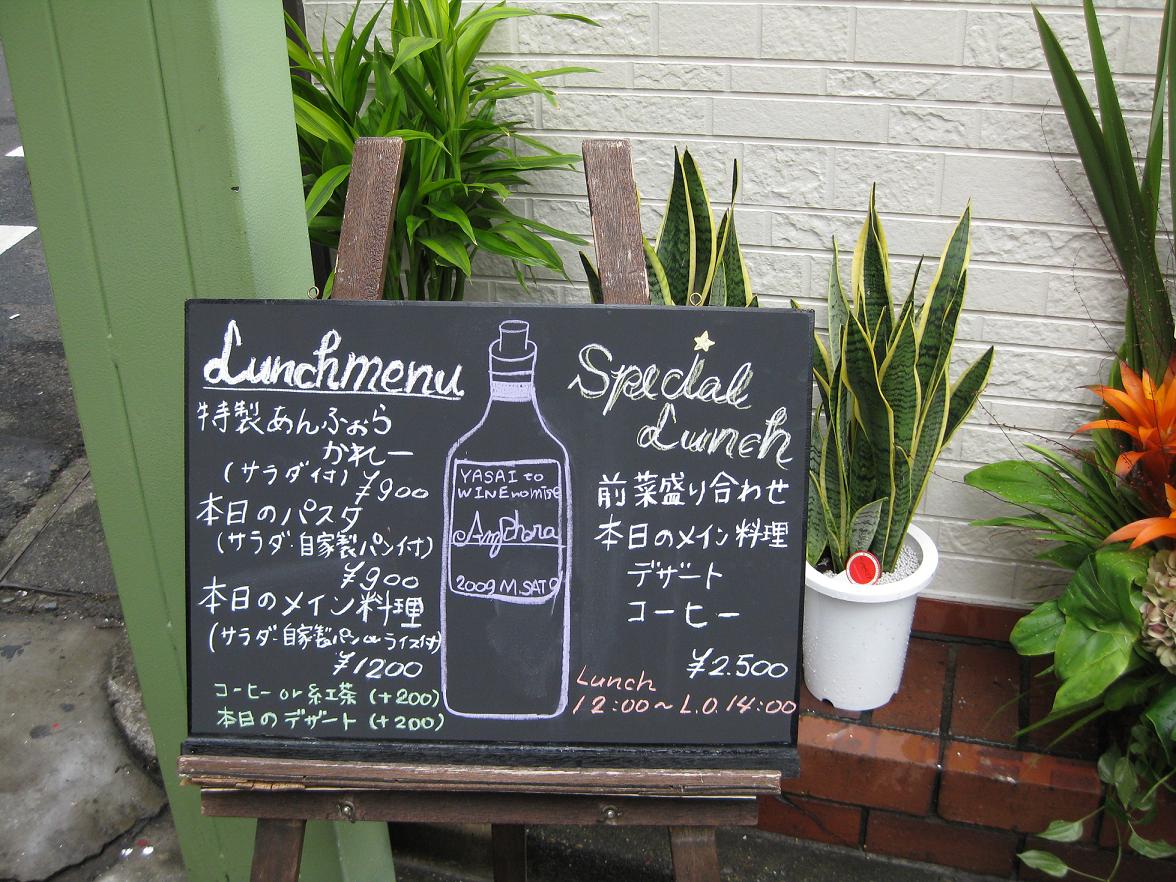 Lunchmenu
特製あんふぉら
かれー
(サラダ付) ¥900
本日のパスタ
(サラダ・自家製パン付)
¥900
本日のメイン料理
(サラダ・自家製パンorライス付)
¥1200
コーヒー or 紅茶 (+200)
本日のデザート (+200)
YASAI to
WINE no mise
Amphora
2009 M.SATO
Special
Lunch
前菜盛り合わせ
本日のメイン料理
デザート
コーヒー
¥2.500
Lunch
12:00~L.O.14:00